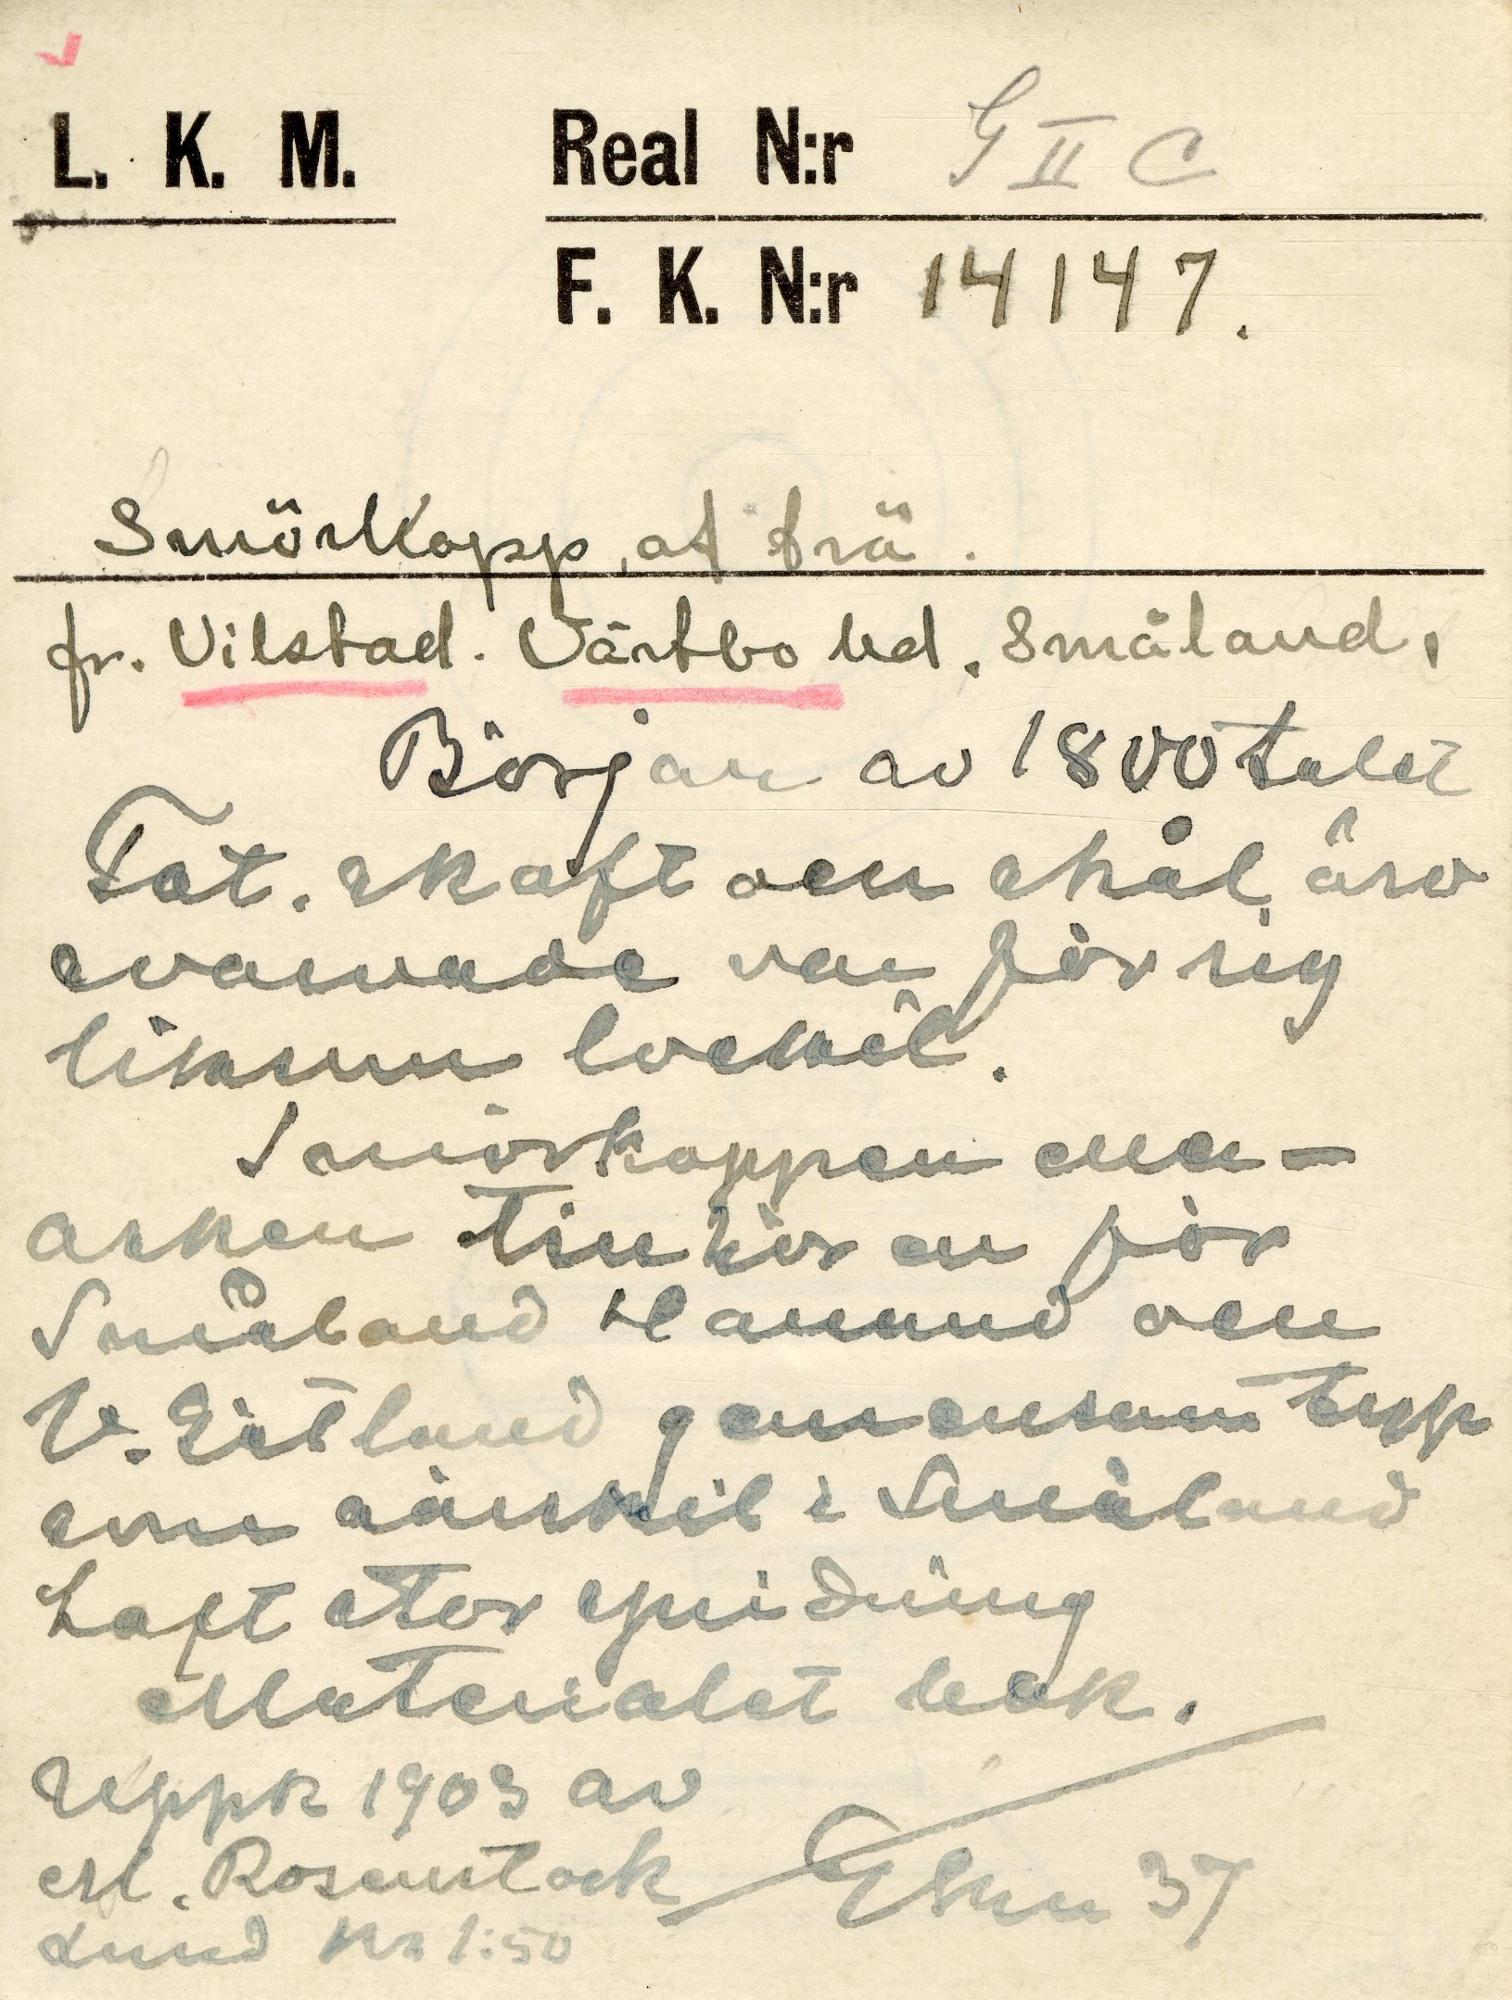 L. K. M. Real N:r G II C
F. K. N:r 14147.
Smörkopp, af trä.
fr. Vilstad. Västbo hd. Småland,
Början av 1800 talet
Fat. skaft och skål äro
svarvade var för sig
liksom locket.
Smörkoppen eller -
asken tillhör en för
Småland Halland och
V. Götland gemensam typ
som särskilt i Småland
haft stor spridning
Materialet bok.
uppk 1903 av
ant. Rosenstock
Lund Kr 1:50
37